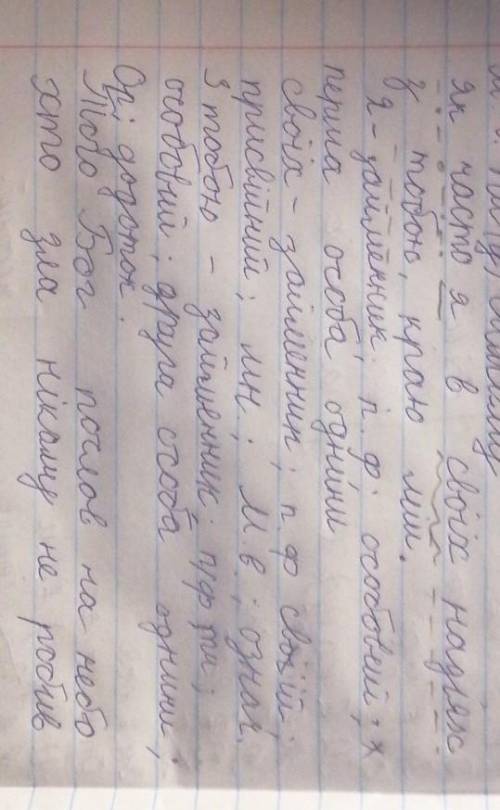 як часто я в своїх надіях
з тобою, краю мій.
Я - займенник; п. ф; особовий; х
перша особа, однини
своїх - займенник; п. ф свої́й;
присвійний; мн; М. в; означ.
З тобою - займенник; п/ф ти;
особовий; друга особа однини;
Ор; додаток.
Тіло Бог послав на небо
хто зла нікому не робив